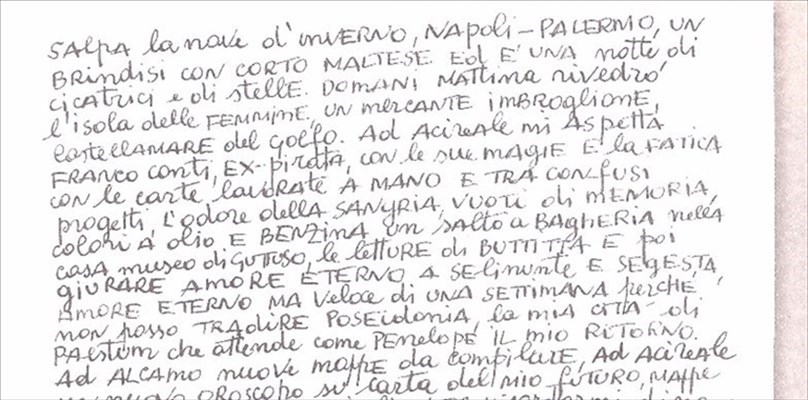 SALPA la nave d'inVERNO, NAPOLI-PALERMO, UN
BRINDISI CON CORTO MALTESE Ed E' UNA notte di
cicatrici e di stelle. DOMANI MATTINA rivedrò
l'isola delle FEMMINE, UN mercante imBROGLIONE,
CastellAMARE del Golfo. Ad Acireale mi Aspetta
FRANCO Conti, EX-pirata, con le sue MAGIE E la FATICA
CON le carte lavorate A MANO E TRA CONFUSI
progetti, l'odore della SANGRIA, VUOTI di MEMORIA,
colori A olio E BENZINA un salto a BAGHERIA nella
casa museo di GUTTUSO, le letture di BUTTITTA E poi
giURARE AMORE ETERNO A Selinunte E SEGESTA,
AMORE ETERNO MA Veloce di UNA SETTIMANA perché
non posso TRADIRE POSEIdONIA, la mia CITTÀ di
PAestum che attende come PENelopE IL mio RITORNO.
Ad ALCAMO nuove mappe da compilARE, Ad Acireale
un nuovo OROSCOPO su carta del mio FUTURO, MAPPE